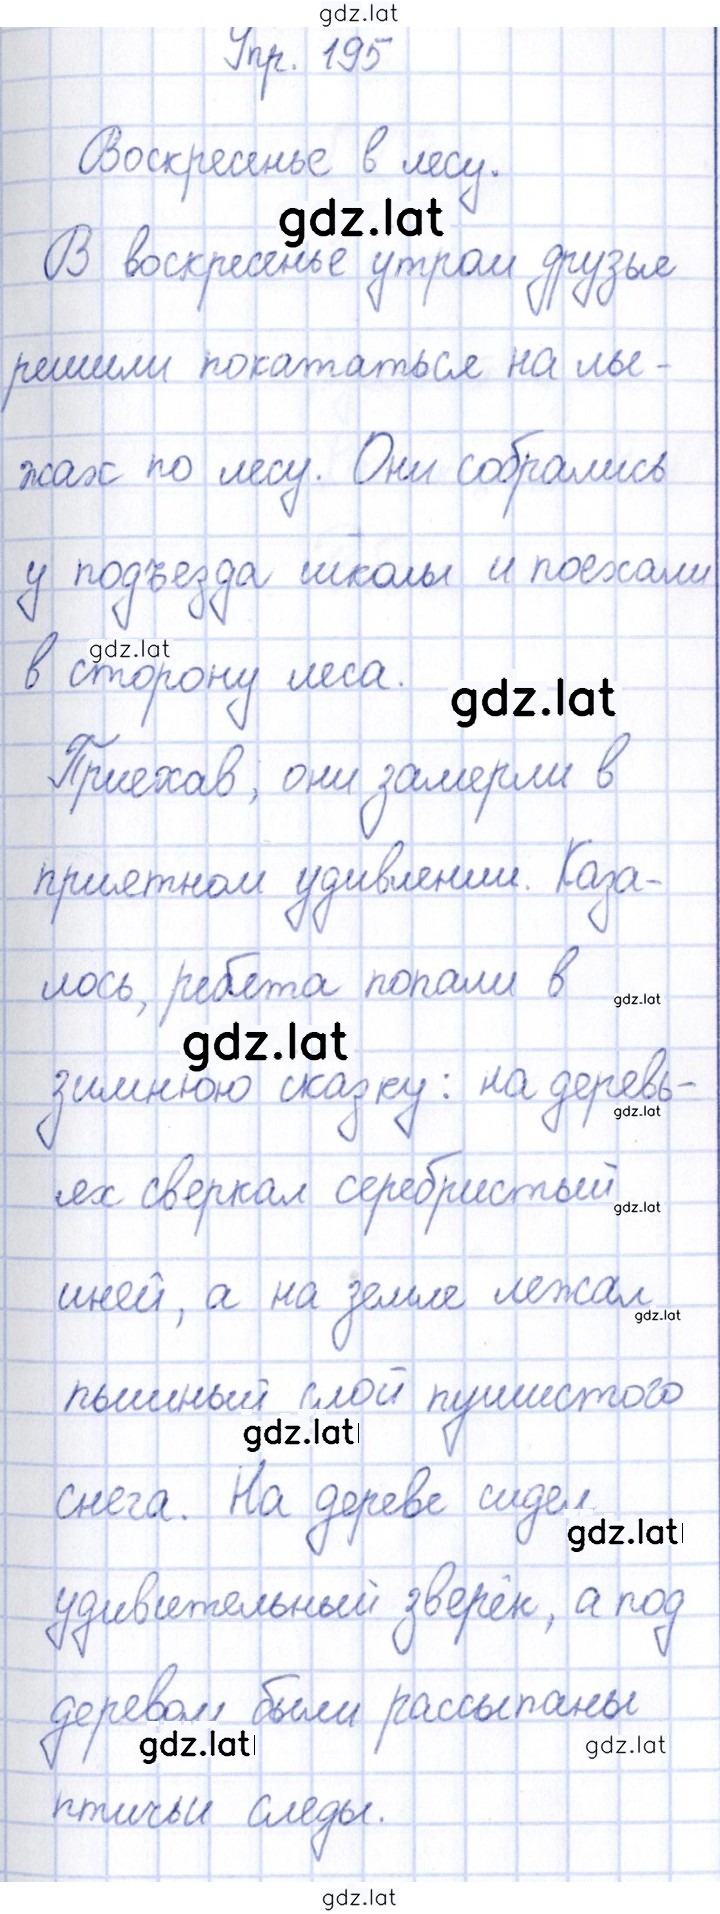 gdz.lat
Упр. 195
Воскресенье в лесу.
gdz.lat
В воскресенье утром друзья
решили покататься на лы-
жах по лесу. Они собрались
у подъезда школы и поехали
gdz.lat
в сторону леса.
gdz.lat
Приехав, они замерли в
приятном удивлении. Каза-
лось, ребята попали в
gdz.lat
gdz.lat
зимнюю сказку: на деревь-
gdz.lat
ях сверкал серебристый
gdz.lat
иней, а на земле лежал
gdz.lat
пышный слой пушистого
gdz.lat
снега. На дереве сидел
gdz.lat
удивительный зверёк, а под
деревом были рассыпаны
gdz.lat
gdz.lat
птичьи следы.
gdz.lat